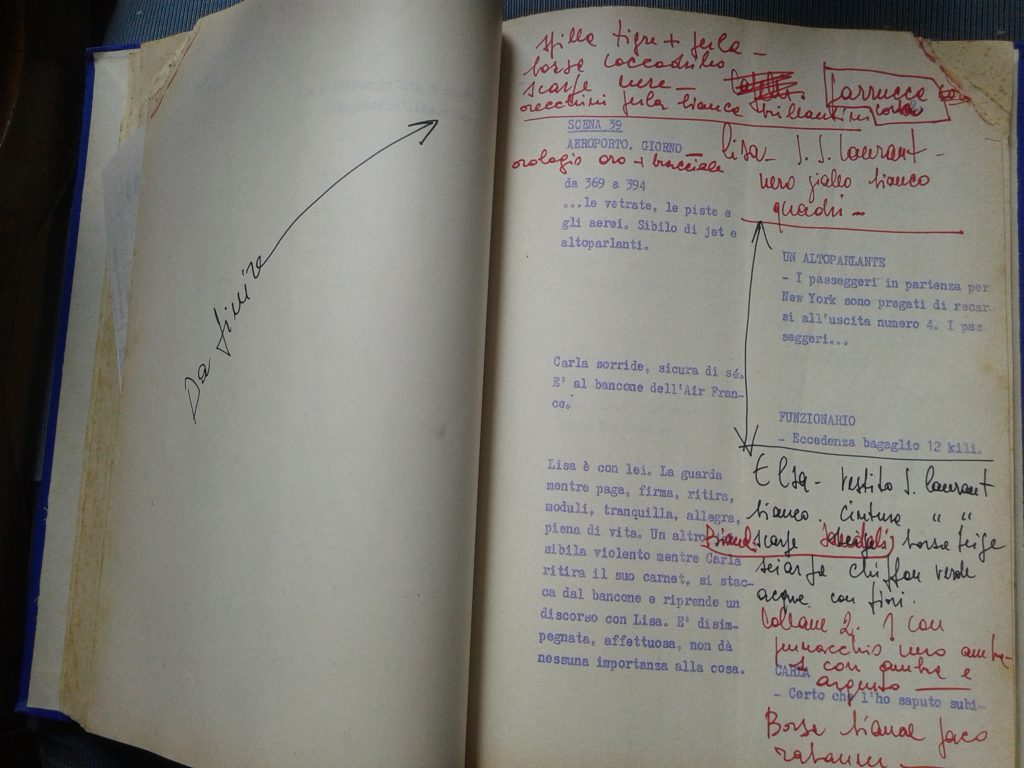 Da finire
spilla tigre + perla -
borse coccodrillo
scarfe nere -
parrucca
orecchini perla bianca brillantini corta
SCENA 39
AEROPORTO. GIORNO
lisa - S. S. laurant -
orologio oro + bracciale
nero giallo bianco
quadri -
da 369 a 394
...le vetrate, le piste e
gli aerei. Sibilo di jet e
altoparlanti.
UN ALTOPARLANTE
- I passeggeri in partenza per
New York sono pregati di recar
si all'uscita numero 4. I pas
seggeri...
Carla sorride, sicura di sé.
E' al bancone dell'Air Fran-
ce.
FUNZIONARIO
- Eccedenza bagaglio 12 kili.
Lisa è con lei. La guarda
mentre paga, firma, ritira,
moduli, tranquilla, allegra,
piena di vita. Un altro
sibila violento mentre Carla
ritira il suo carnet, si stac-
ca dal bancone e riprende un
discorso con Lisa. E' disim-
pegnata, affettuosa, non dà
nessuna importanza alla cosa.
Elsa - vestito S. laurant
bianco. cinture " "
scarfe borse beige
sciarfa chiffon verde
acqua con fiori.
Collane 2. 1 con
pennacchio nero ambra
1 con ambre e
argento
CARLA
- Certo che l'ho saputo subi-
Borse bianca paco
rabanne